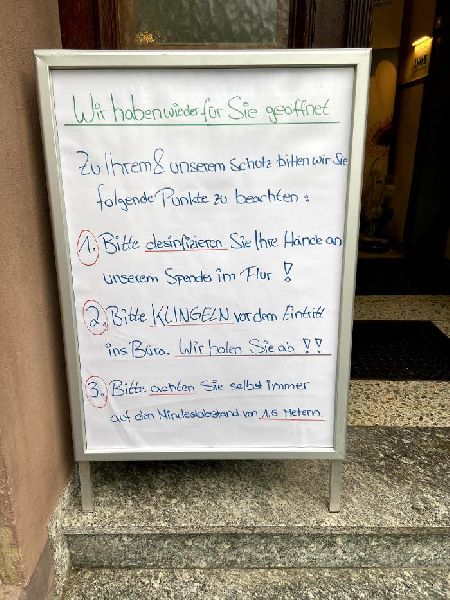 Wir haben wieder für Sie geöffnet
Zu Ihrem & unserem Schutz bitten wir Sie
folgende Punkte zu beachten:
1. Bitte desinfizieren Sie Ihre Hände an
unserem Spender im Flur!
2. Bitte KLINGELN vor dem Eintritt
ins Büro. Wir holen Sie ab!!
3. Bitte achten Sie selbst immer
auf den Mindestabstand von 1,5 Metern